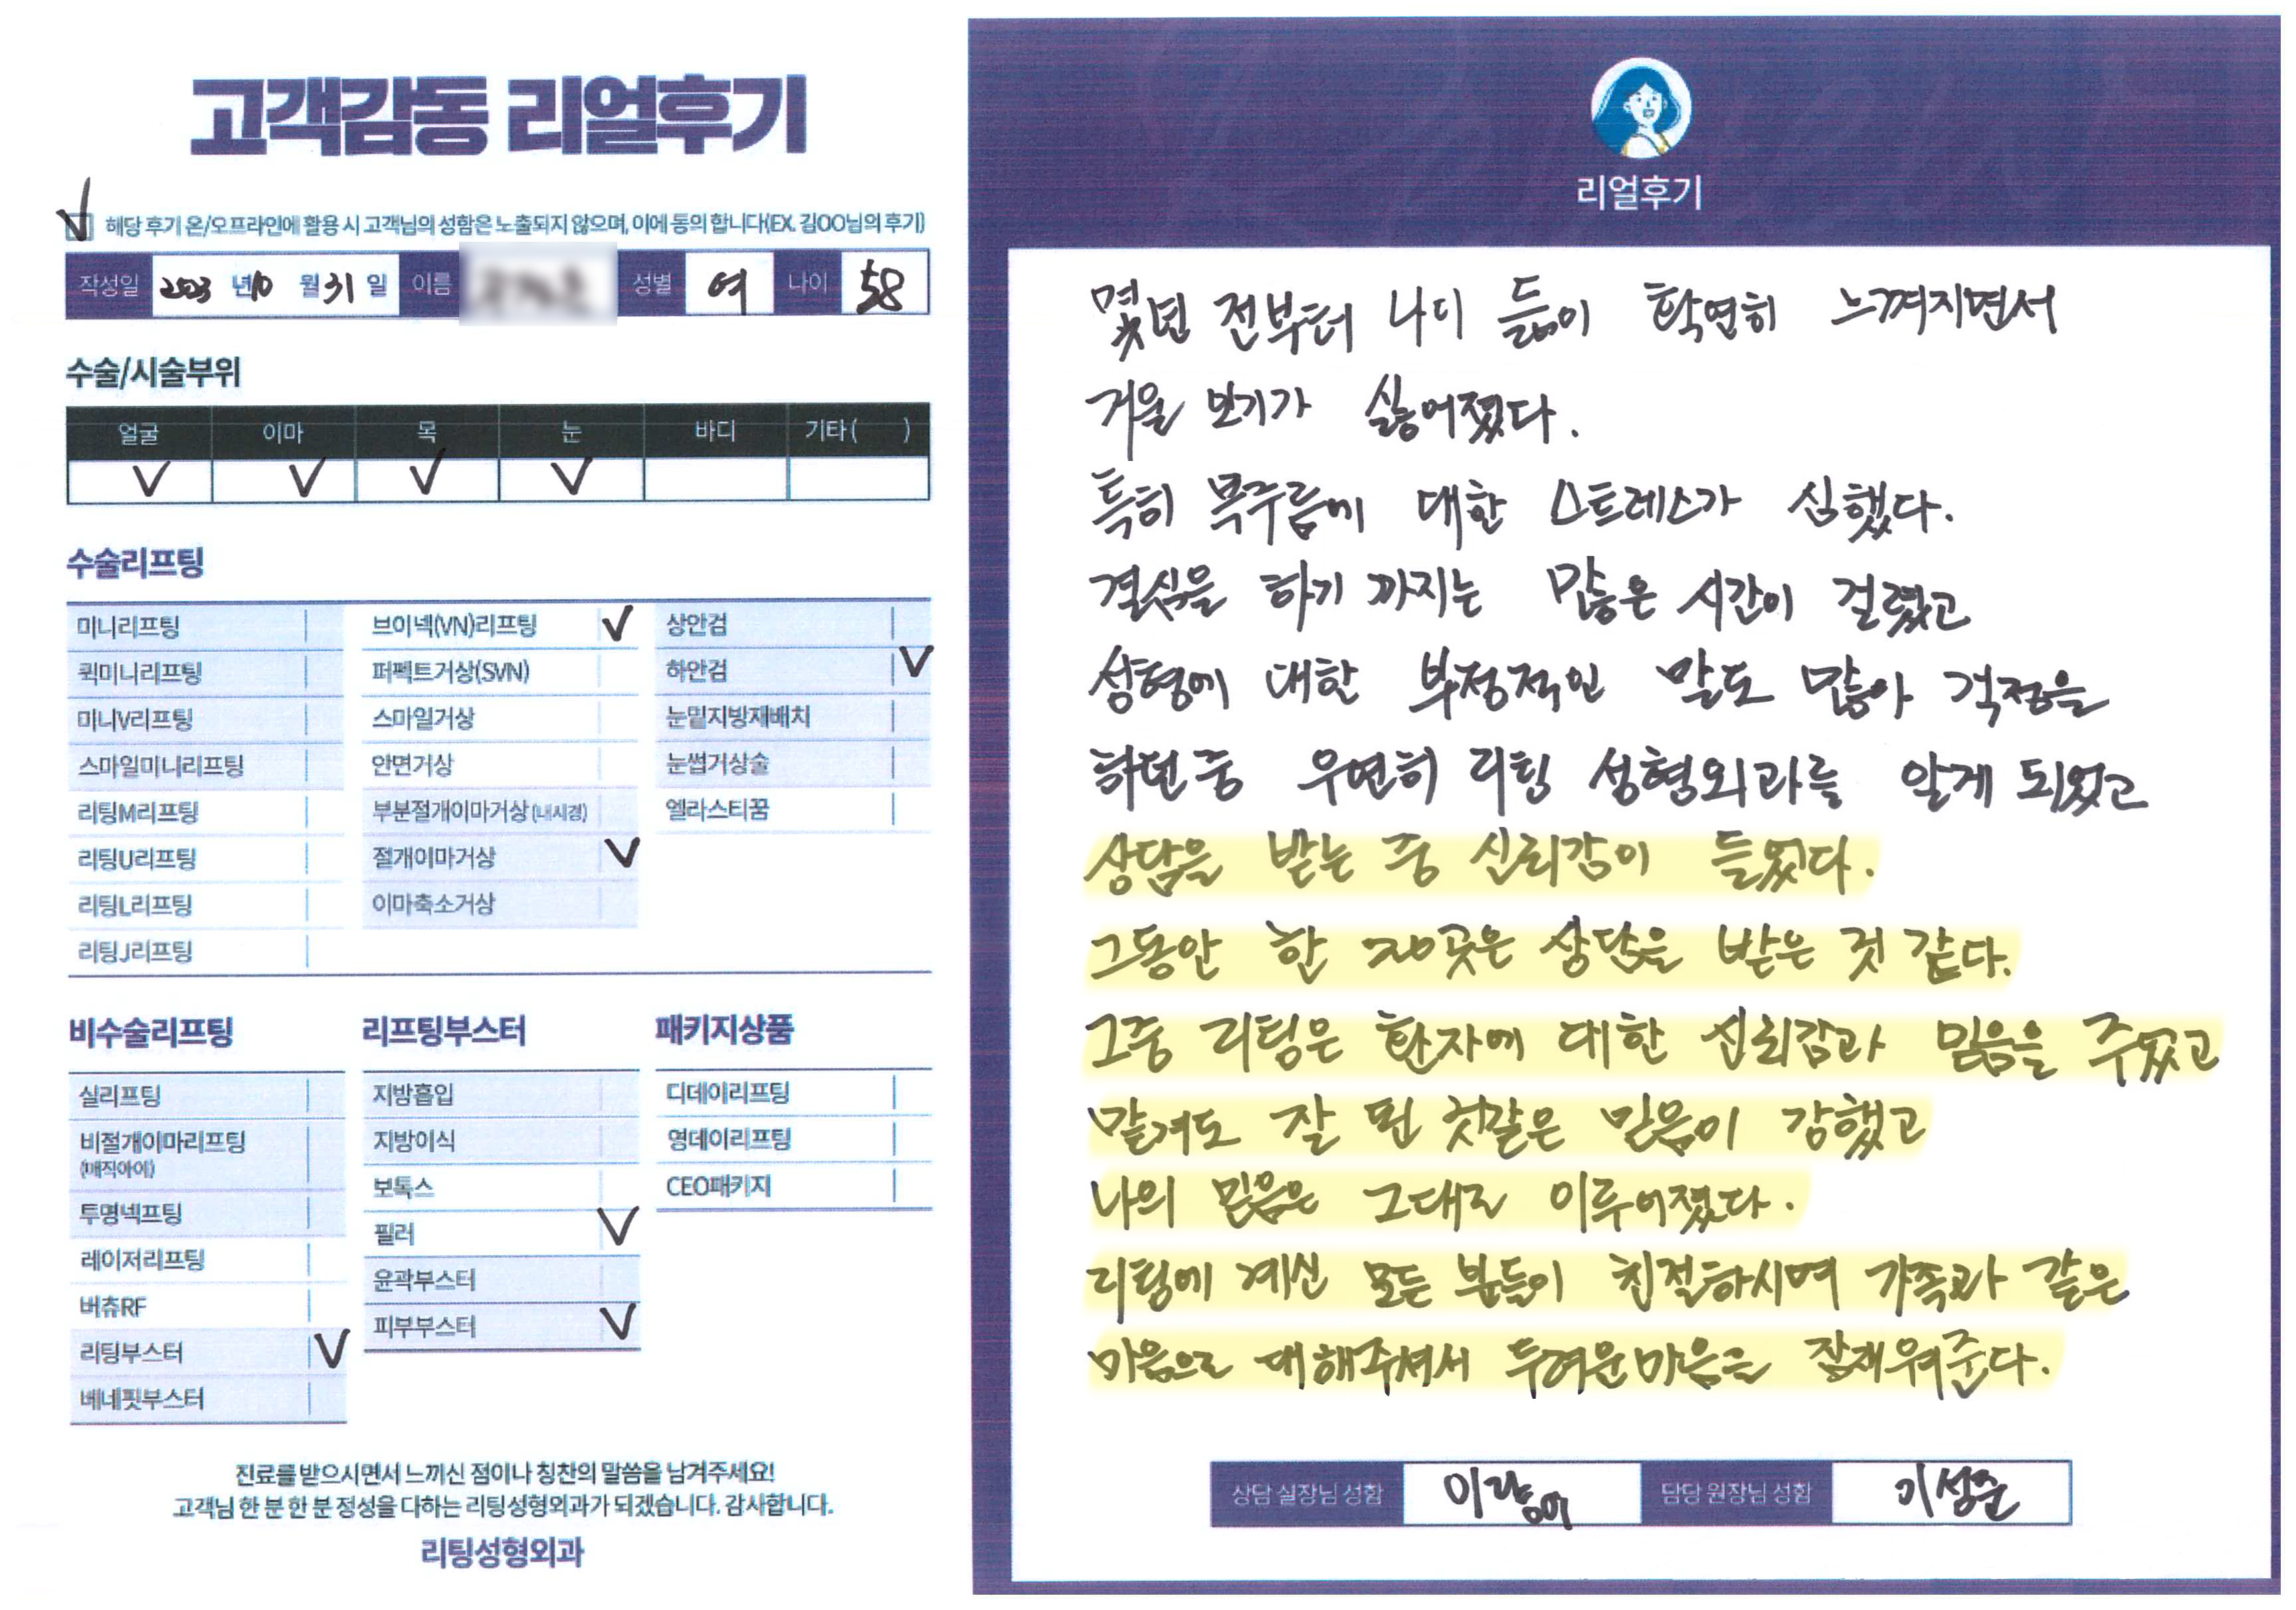 고객감동 리얼후기
해당 후기 온/오프라인에 활용 시 고객님의 성함은 노출되지 않으며, 이에 동의 합니다(EX. 김OO님의 후기)
작성일 2023 년 10 월 31 일 이름 성별 여 나이 58
수술/시술부위
얼굴 이마 목 눈 바디 기타( )
수술리프팅
미니리프팅 브이넥(VN)리프팅 상안검
퀵미니리프팅 퍼펙트거상(SVN) 하안검
미니V리프팅 스마일거상 눈밑지방재배치
스마일미니리프팅 안면거상 눈썹거상술
리팅M리프팅 부분절개이마거상(내시경) 엘라스티꿈
리팅U리프팅 절개이마거상
리팅L리프팅 이마축소거상
리팅J리프팅
비수술리프팅 리프팅부스터 패키지상품
실리프팅 지방흡입 디데이리프팅
비절개이마리프팅 지방이식 영데이리프팅
(매직아이) 보톡스 CEO패키지
투명넥프팅 필러
레이저리프팅 윤곽부스터
버츄RF 피부부스터
리팅부스터
베네핏부스터
진료를 받으시면서 느끼신 점이나 칭찬의 말씀을 남겨주세요!
고객님 한 분 한 분 정성을 다하는 리팅성형외과가 되겠습니다. 감사합니다.
리팅성형외과
리얼후기
몇년 전부터 나디 듦이 확연히 느껴지면서
거울 보기가 싫어졌다.
특히 목주름에 대한 스트레스가 심했다.
결심을 하기 까지는 많은 시간이 걸렸고
성형에 대한 부정적인 말도 많아 걱정을
하던중 우연히 리팅 성형외과를 알게 되었고
상담을 받는 중 신뢰감이 들었다.
그동안 한 20곳은 상담을 받은 것 같다.
그중 리팅은 환자에 대한 신뢰감과 믿음을 주었고
맡겨도 잘 될 것같은 믿음이 강했고
나의 믿음은 그대로 이루어졌다.
리팅에 계신 모든 분들이 친절하시며 가족과 같은
마음으로 대해주셔서 두려운마음을 잠재워준다.
상담 실장님 성함 담당 원장님 성함